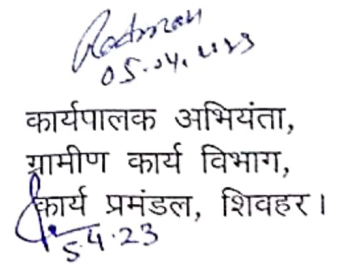 05.04.2023
कार्यपालक अभियंता,
ग्रामीण कार्य विभाग,
कार्य प्रमंडल, शिवहर।
5.4.23